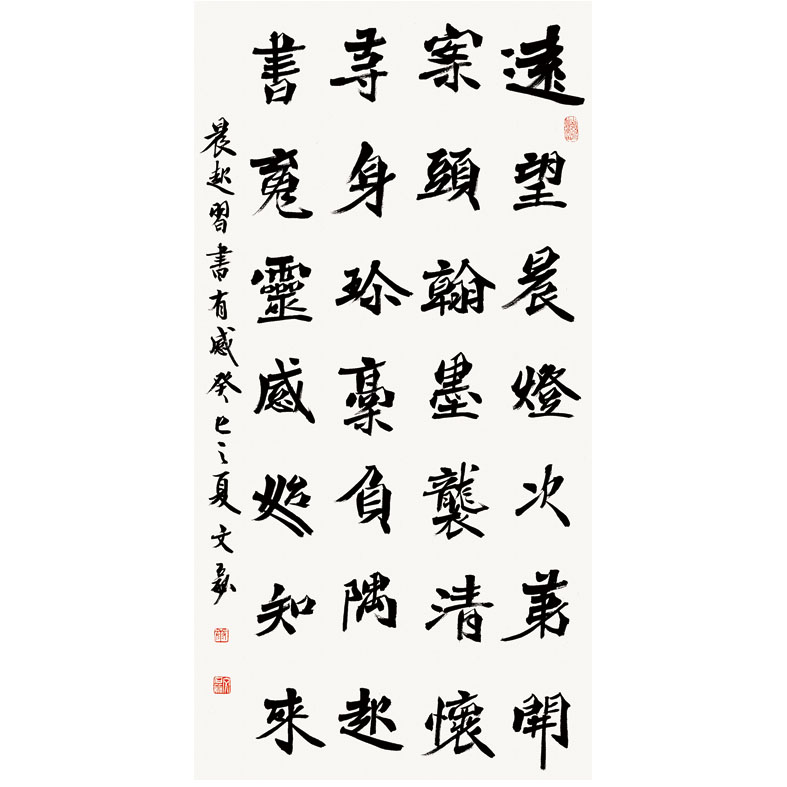 遠望晨燈次第開
案頭翰墨襲清懷
等身珍稾負隅起
書靈感始知來
晨起習書有感癸巳之夏文